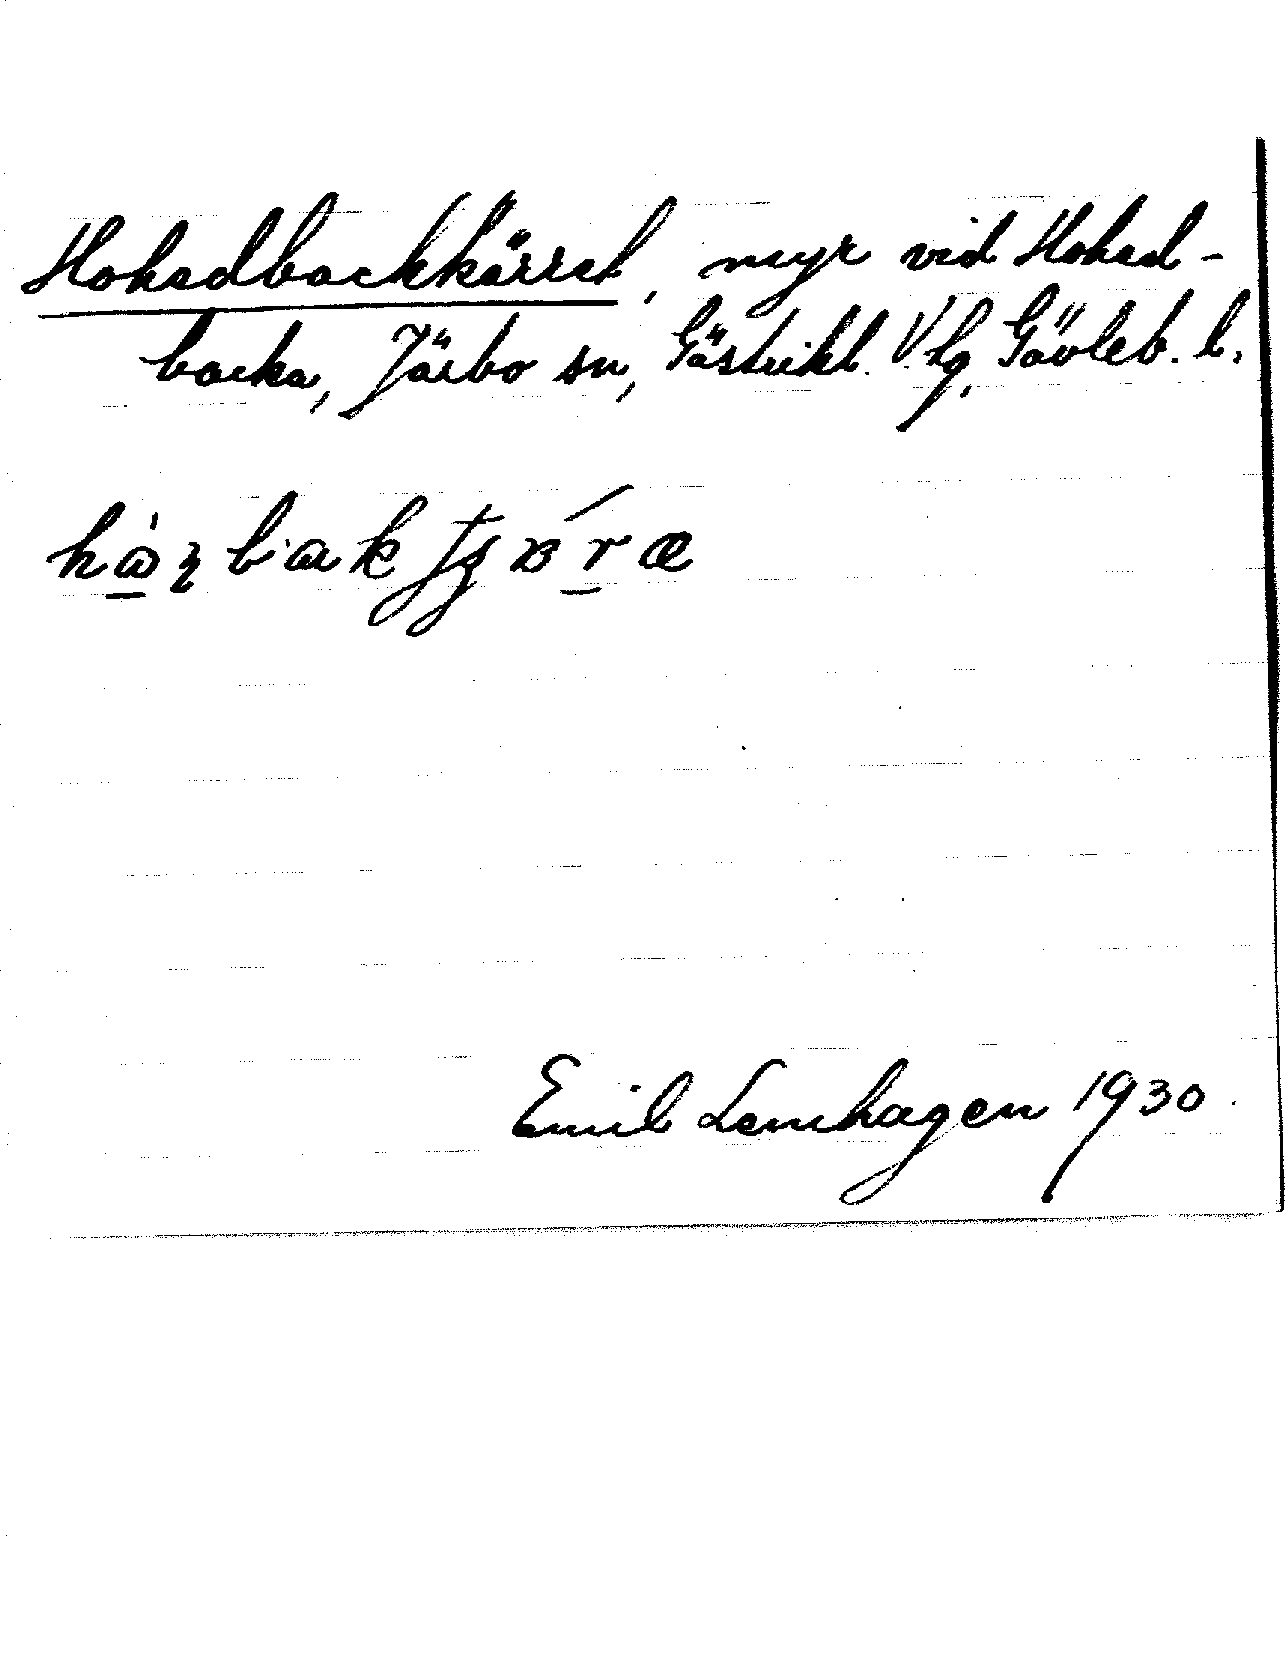 Hohedbackkärret, myr vid Hohed-
backa, Järbo sn, Gästrikl. V. hg, Gävleb. l.
Emil Lemhagen 1930